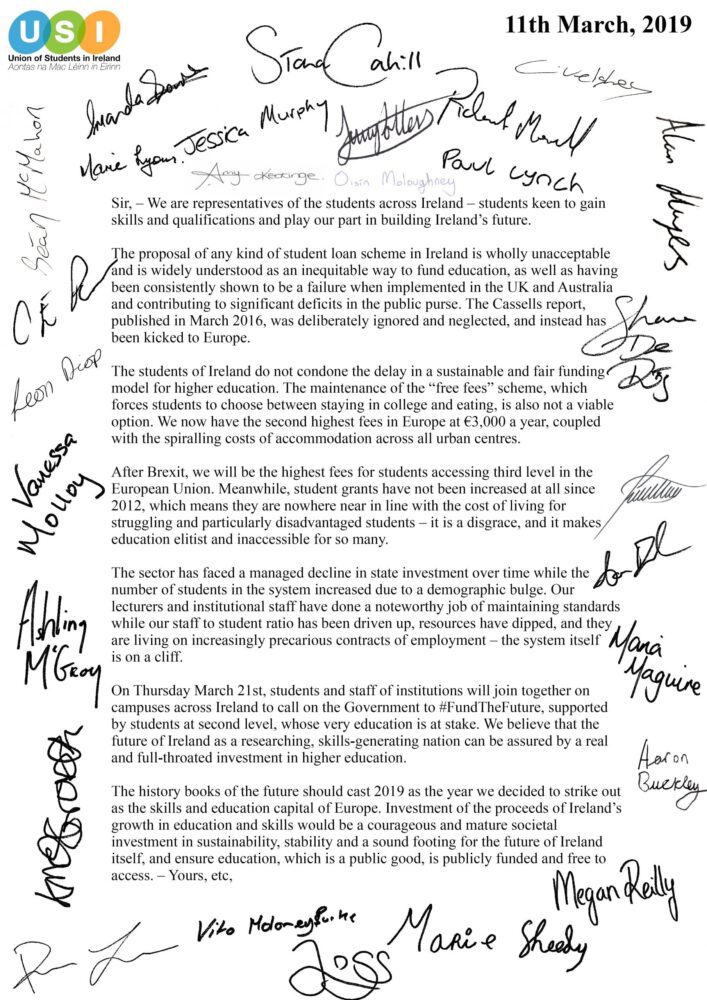 USI
Union of Students in Ireland
Aontas na Mac Léinn in Éirinn
11th March, 2019
Síona Cahill
Amanda
Jessica Murphy
Marie Lyons.
Paul Lynch
Amy
Oisín Moloughney
Seán McMahon
Alan Hayes
Sir, – We are representatives of the students across Ireland – students keen to gain
skills and qualifications and play our part in building Ireland’s future.
The proposal of any kind of student loan scheme in Ireland is wholly unacceptable
and is widely understood as an inequitable way to fund education, as well as having
been consistently shown to be a failure when implemented in the UK and Australia
and contributing to significant deficits in the public purse. The Cassells report,
published in March 2016, was deliberately ignored and neglected, and instead has
been kicked to Europe.
Shane
De
Rís
Leon Diop
The students of Ireland do not condone the delay in a sustainable and fair funding
model for higher education. The maintenance of the “free fees” scheme, which
forces students to choose between staying in college and eating, is also not a viable
option. We now have the second highest fees in Europe at €3,000 a year, coupled
with the spiralling costs of accommodation across all urban centres.
Vanessa
Molloy
After Brexit, we will be the highest fees for students accessing third level in the
European Union. Meanwhile, student grants have not been increased at all since
2012, which means they are nowhere near in line with the cost of living for
struggling and particularly disadvantaged students – it is a disgrace, and it makes
education elitist and inaccessible for so many.
The sector has faced a managed decline in state investment over time while the
number of students in the system increased due to a demographic bulge. Our
lecturers and institutional staff have done a noteworthy job of maintaining standards
while our staff to student ratio has been driven up, resources have dipped, and they
are living on increasingly precarious contracts of employment – the system itself
is on a cliff.
Aisling
McGroy
Maria
Maguire
On Thursday March 21st, students and staff of institutions will join together on
campuses across Ireland to call on the Government to #FundTheFuture, supported
by students at second level, whose very education is at stake. We believe that the
future of Ireland as a researching, skills-generating nation can be assured by a real
and full-throated investment in higher education.
Aaron
Buckley
The history books of the future should cast 2019 as the year we decided to strike out
as the skills and education capital of Europe. Investment of the proceeds of Ireland’s
growth in education and skills would be a courageous and mature societal
investment in sustainability, stability and a sound footing for the future of Ireland
itself, and ensure education, which is a public good, is publicly funded and free to
access. – Yours, etc,
Megan Reilly
Vito Moloney Burke
Marie Sheedy